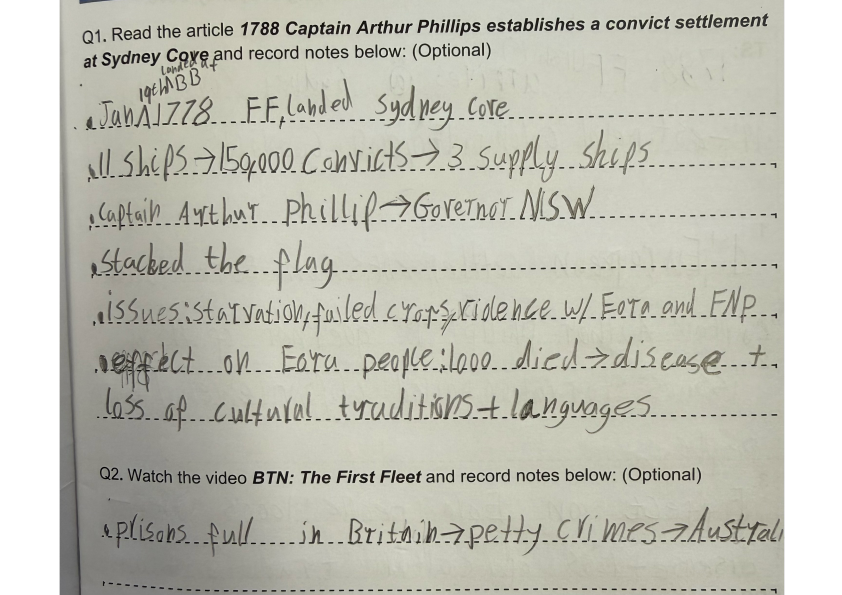 Q1. Read the article 1788 Captain Arthur Phillips establishes a convict settlement
at Sydney Cove and record notes below: (Optional)
landed at
19th BB
Jan 1778 FF, landed Sydney Cove
11 ships→150,000 Convicts→3 supply ships
Captain Arthur Phillip→Governor NSW
Stacked the flag
issues: starvation, failed crops, violence w/ Eora and FNP
effect on Eora people: 1000 died→disease +
loss of cultural traditions + languages
Q2. Watch the video BTN: The First Fleet and record notes below: (Optional)
prisons full in Brithin→petty crimes→Australi